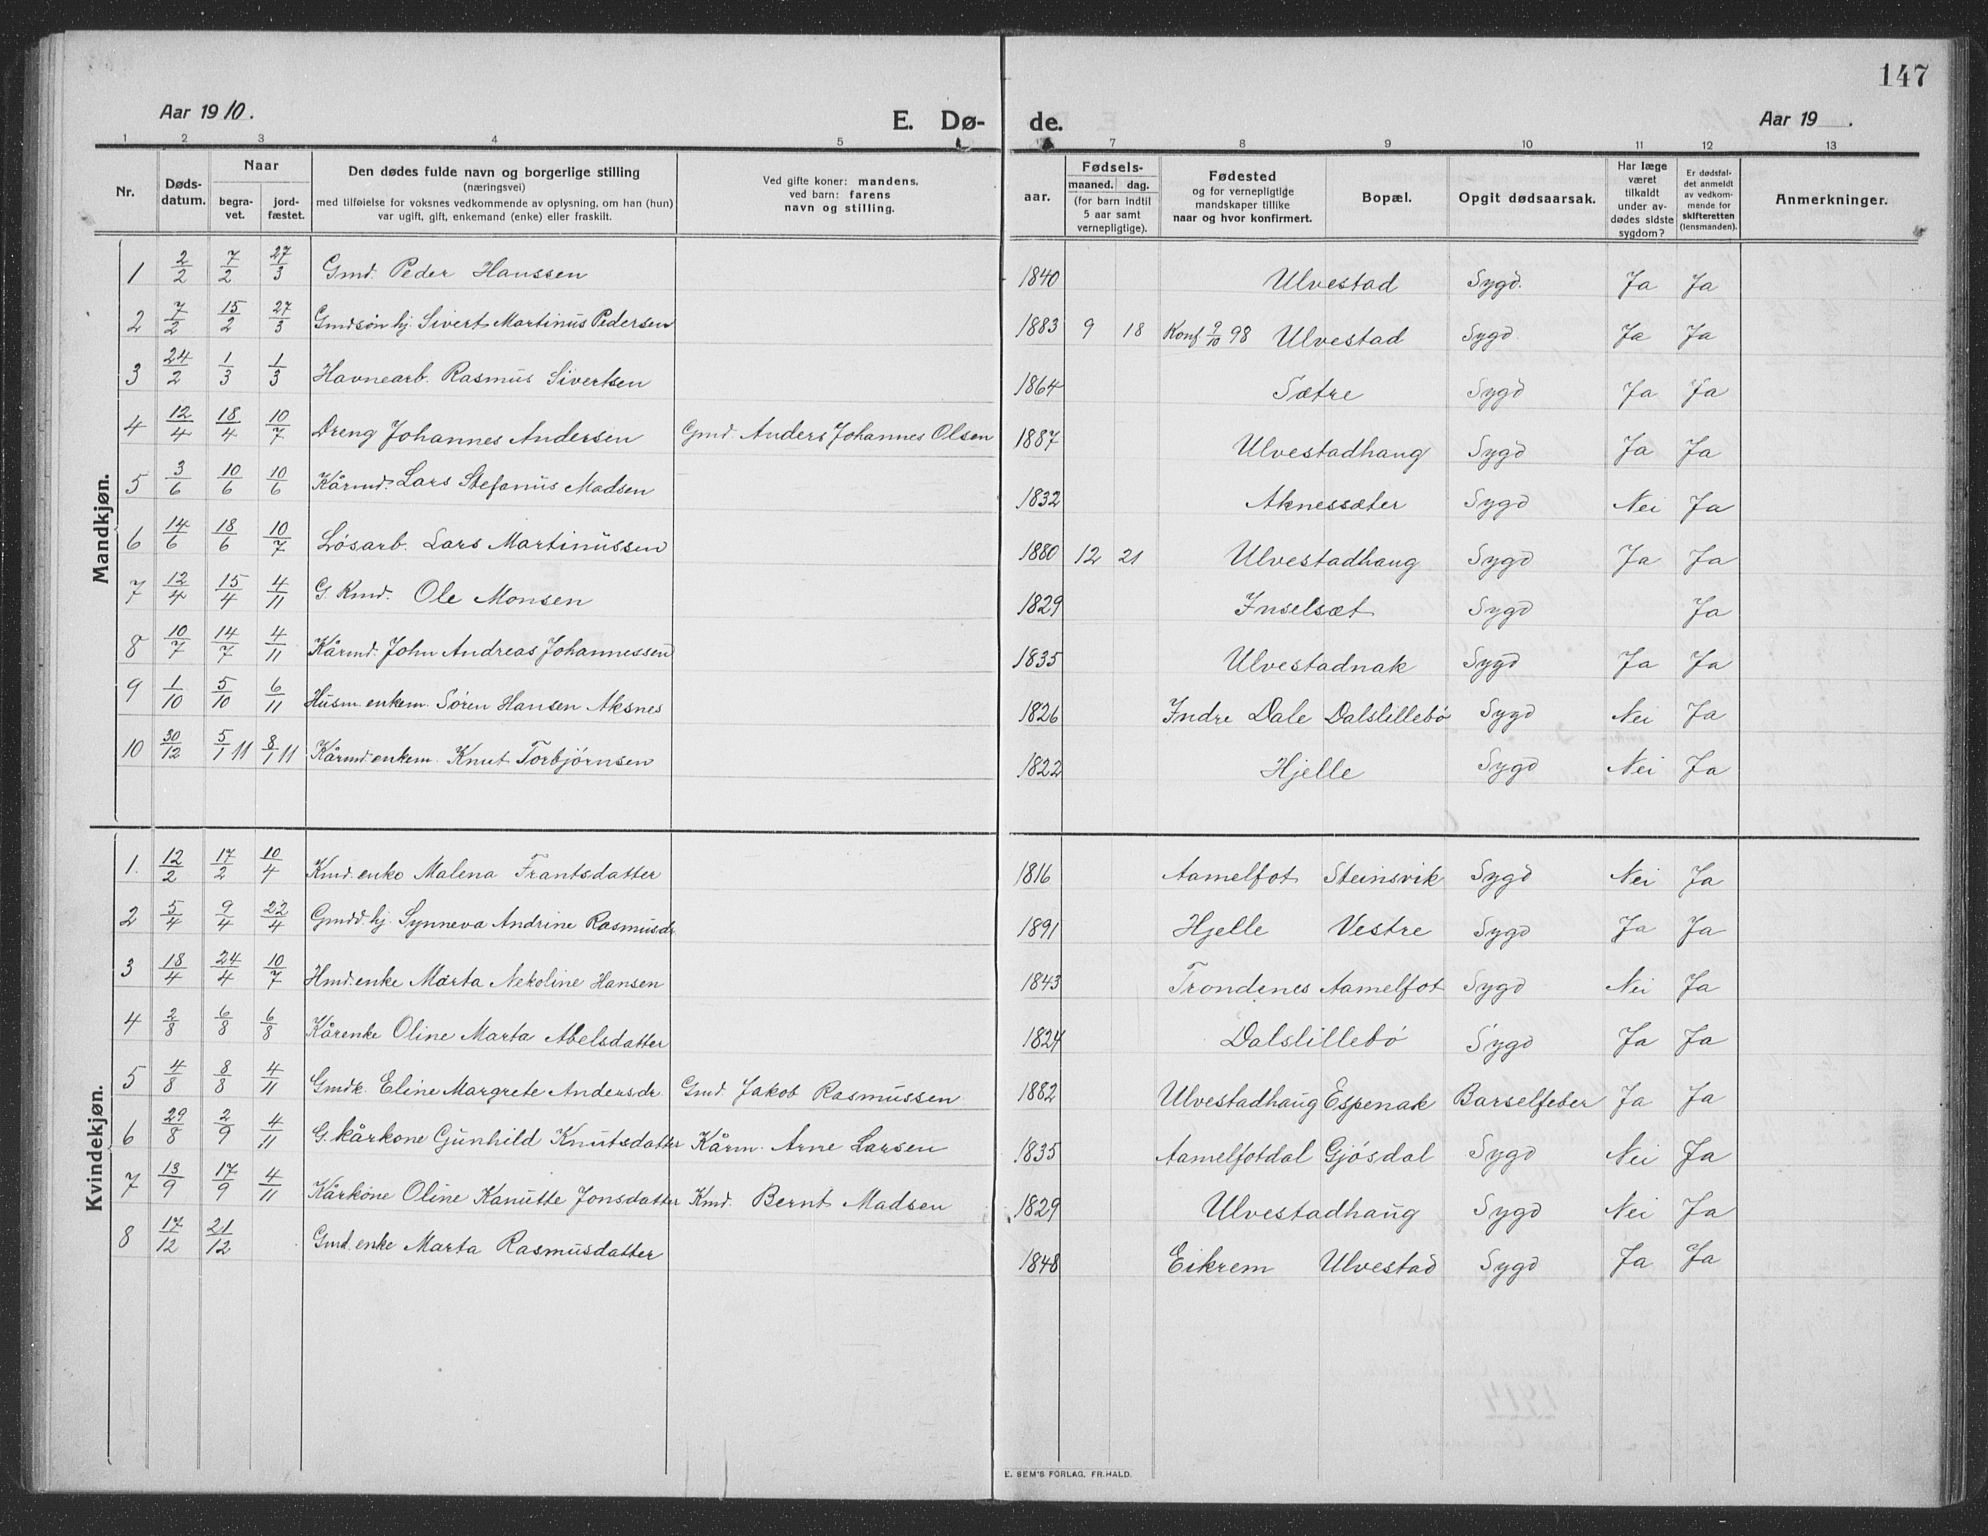 147
Aar 1910.
E. Dø- de.
Aar 19 .
1 2 3 4 5 7 8 9 10 11 12 13
Nr. | Døds-datum. | Naar begra-vet. | jord-fæstet. | Den dødes fulde navn og borgerlige stilling (næringsvei) med tilføielse for voksnes vedkommende av oplysning, om han (hun) var ugift, gift, enkemand (enke) eller fraskilt. | Ved gifte koner: mandens, ved barn: farens navn og stilling. | aar. | Fødsels- maaned. dag. (for barn indtil 5 aar samt vernepligtige). | Fødested og for vernepligtige mandskaper tillike naar og hvor konfirmert. | Bopæl. | Opgit dødsaarsak. | Har læge været tilkaldt under av-dødes sidste sygdom? | Er dødsfal-det anmeldt av vedkom-mende for skifteretten (lensmanden). | Anmerkninger.
Mandkjøn.
1 2/2 7/2 27/3 Gmd. Peder Hanssen 1840 Ulvestad Sygd. Ja Ja
2 7/2 15/2 27/3 Gmdsøn hj. Sivert Martinus Pedersen 1883 9 18 Konf 9/10 98 Ulvestad Sygd. Ja Ja
3 24/2 1/3 1/3 Havnearb. Rasmus Sivertsen 1864 Sætre Sygd Ja Ja
4 12/4 18/4 10/7 Dreng Johannes Andersen Gmd. Anders Johannes Olsen 1887 Ulvestadhaug Sygd Ja Ja
5 3/6 10/6 10/6 Kårmd. Lars Stefanus Madsen 1832 Aknessæter Sygd Nei Ja
6 14/6 18/6 10/7 Løsarb. Lars Martinussen 1880 12 21 Ulvestadhaug Sygd Ja Ja
7 12/4 15/4 4/11 G. Kmd. Ole Monsen 1829 Inselsæt Sygd Ja
8 10/7 14/7 4/11 Kårmd. John Andreas Johannessen 1835 Ulvestadnak Sygd Ja Ja
9 1/10 5/10 6/11 Husm. enkem. Søren Hansen Aksnes 1826 Indre Dale Dalslillebø Sygd Nei Ja
10 30/12 5/1 11 8/1 11 Kårmd. enkem. Knut Torbjørnsen 1822 Hjelle Sygd Nei Ja
Kvindekjøn.
1. 12/2 17/2 10/4 Kmd. enke Malena Frantsdatter 1816 Aamelfot Steinsvik Sygd Nei Ja
2 5/4 9/4 22/4 Gmdd hj. Synneva Andrine Rasmusdr. 1891 Hjelle Vestre Sygd Ja Ja
3 18/4 24/4 10/7 Hmd. enke Marta Nekoline Hansen 1843 Trondenes Aamelfot Sygd Nei Ja
4 2/8 6/8 6/8 Kårenke Oline Marta Abelsdatter 1824 Dalslillebø Sygd Ja Ja
5 4/8 8/8 4/11 Gmdk. Eline Margrete Andersdr. Gmd. Jakob Rasmussen 1882 Ulvestadhaug Espenak Barselfeber Ja Ja
6 29/8 2/9 4/11 G. kårkone Gunhild Knutsdatter Kårm. Arne Larsen 1835 Aamelfotdal Gjösdal Sygd Nei Ja
7 13/9 17/9 4/11 Kårkone Oline Kanutte Jonsdatter Kmd. Bernt Madsen 1829 Ulvestadhaug Sygd Nei Ja
8 17/12 21/12 Gmd. enke Marta Rasmusdatter 1848 Eikrem Ulvestad Sygd Ja Ja
E. SEM'S FORLAG, FR.HALD.